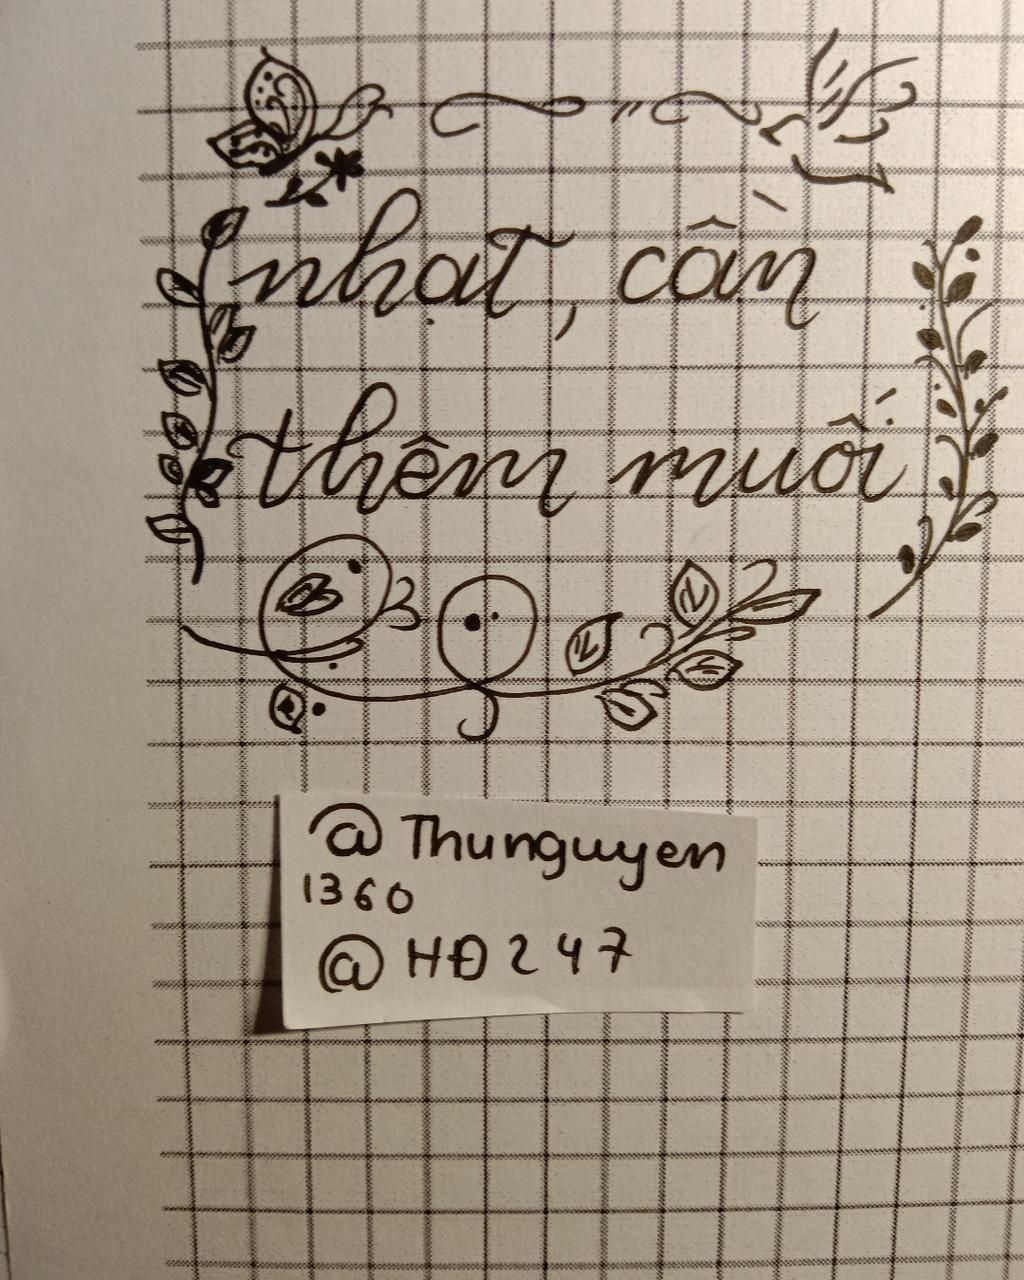 nhạt, cần
thêm muối
@Thunguyen
1360
@HĐ247